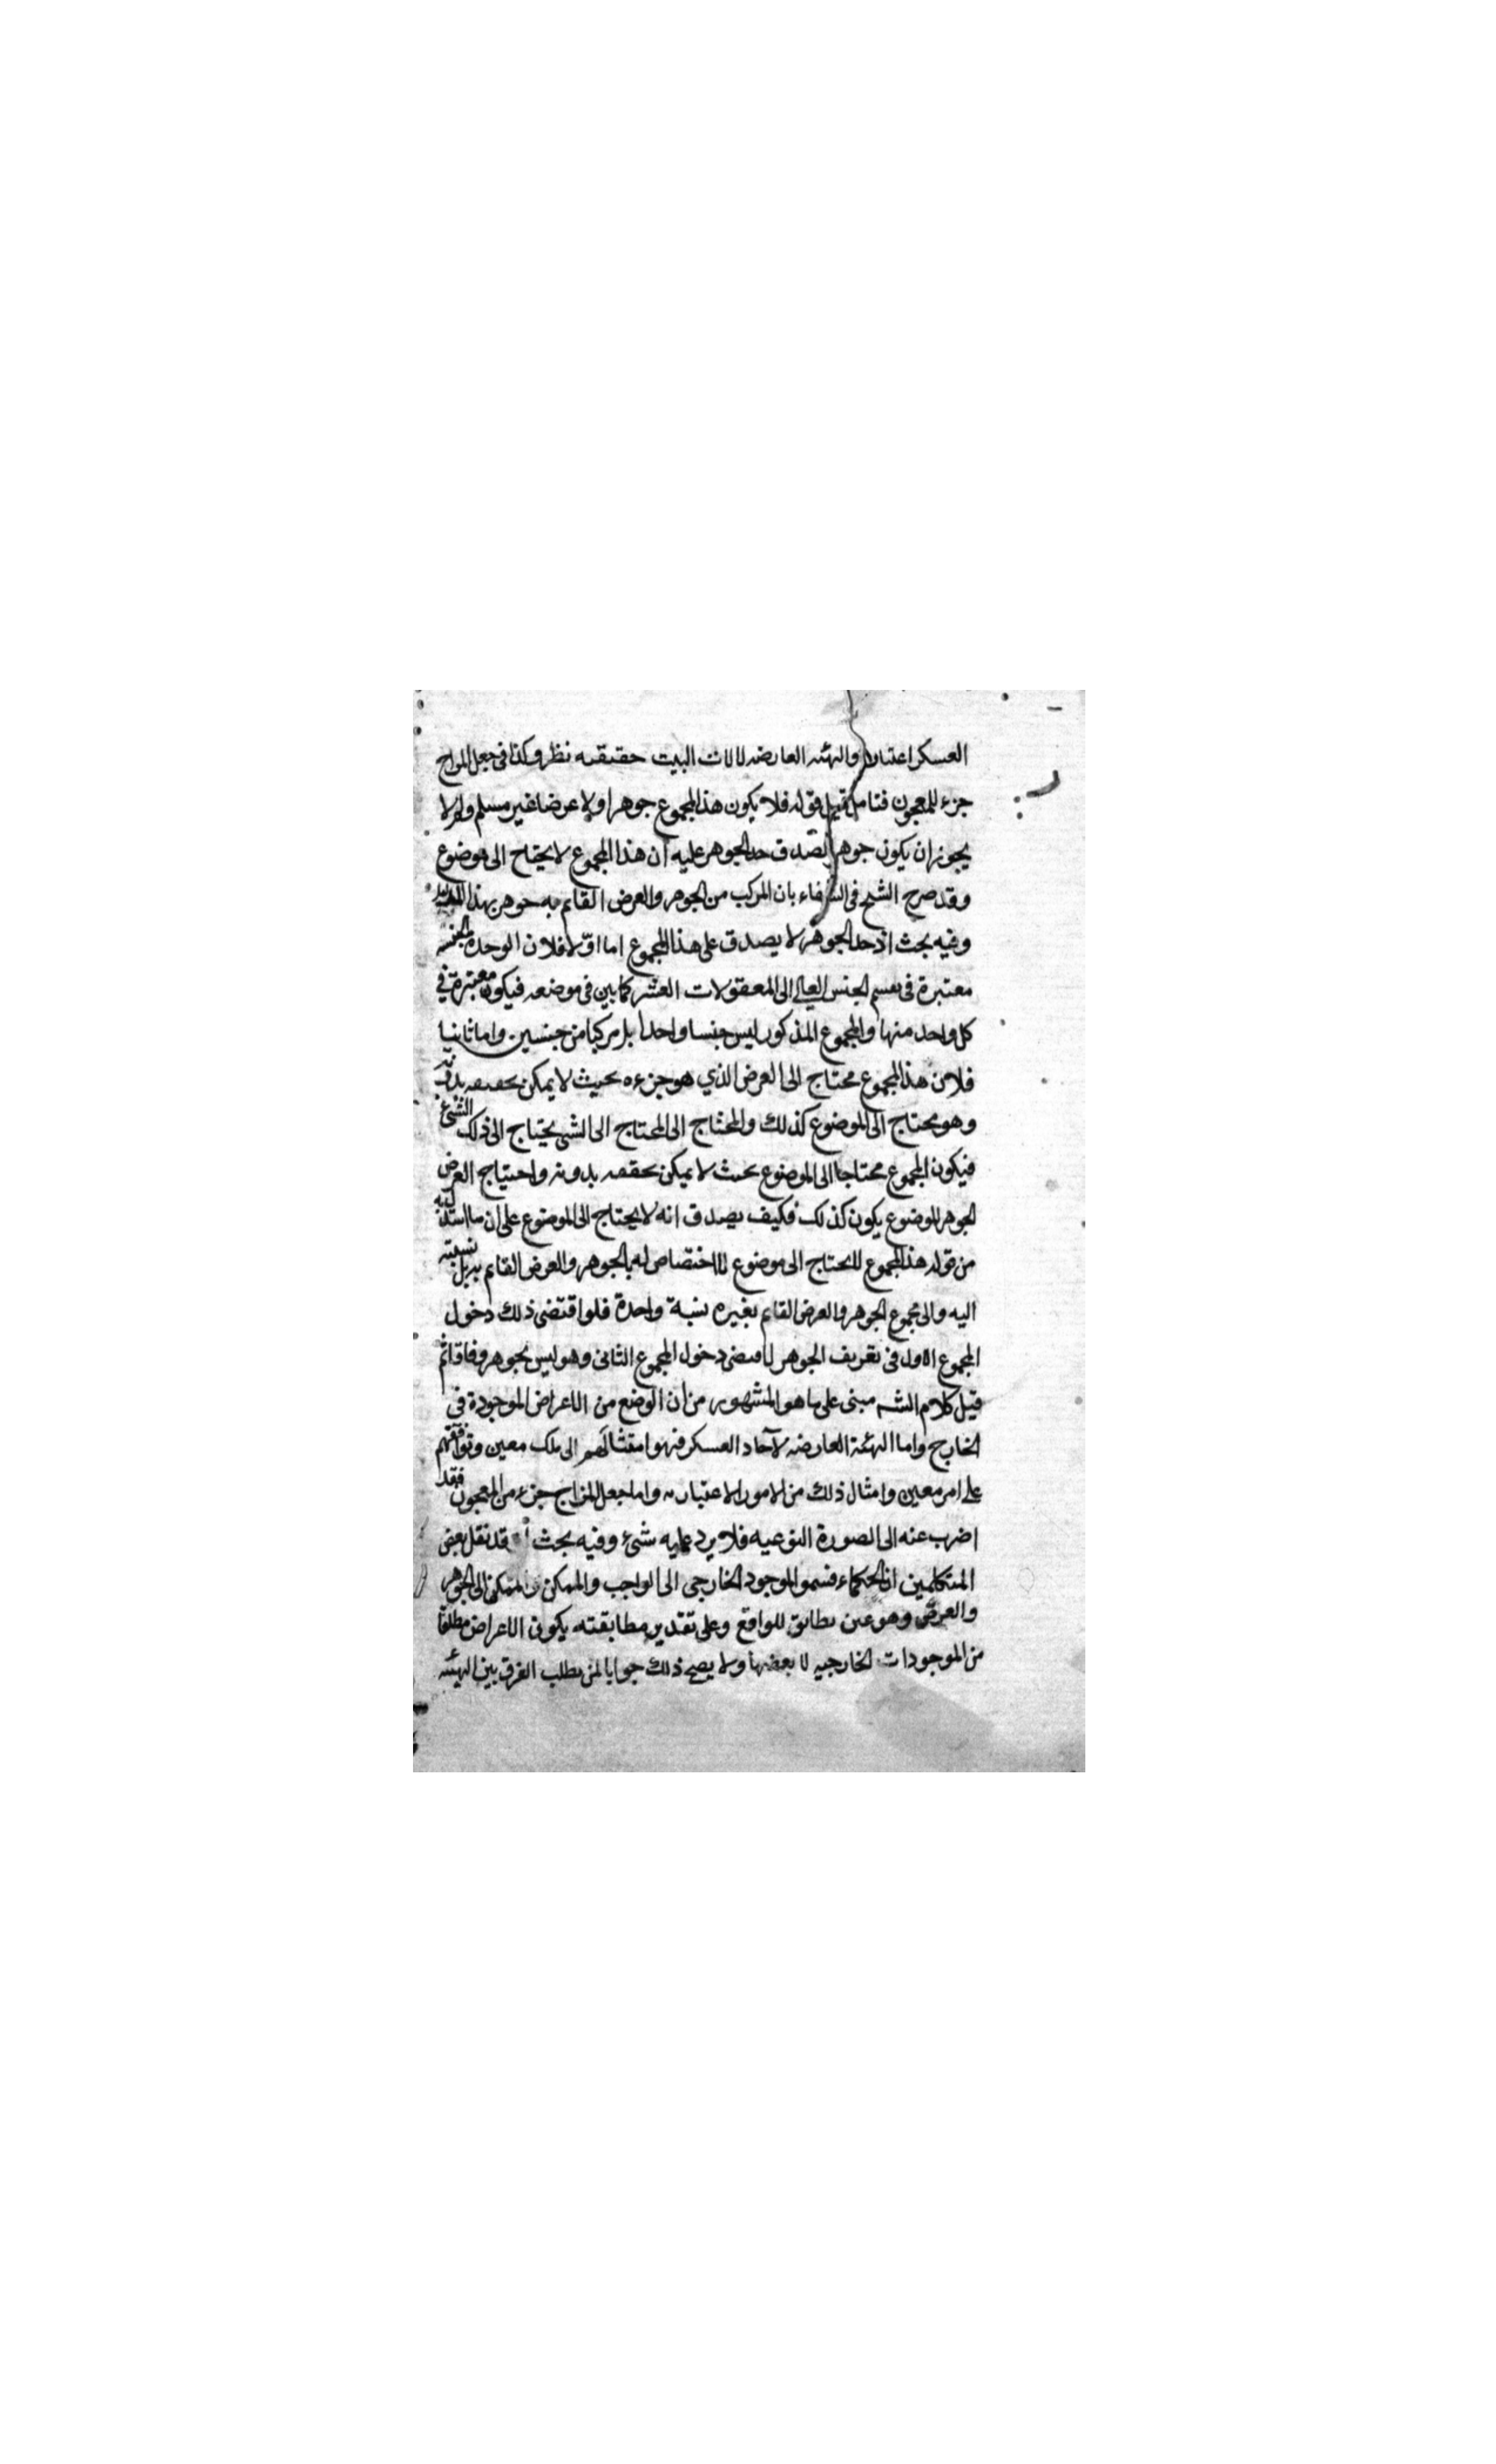 العسكر اعتبارية والهيئه العارضه لالات البيت حقيقيه نظر وكذا فى جعل المزاج
جزء للمعجون فتامل قيل قوله فلا يكون هذا المجموع جوهرا ولا عرضا غير مسلم ولم لا
يجوز ان يكون جوهرا لصدق حد الجوهر عليه ان هذا المجموع لا يحتاج الى موضوع
وقد صرح الشيخ فى الشفاء بان المركب من الجوهر والعرض القائم به جوهر بهذا
وفيه بحث اذ حد الجوهر لا يصدق على هذا المجموع اما اولا فلان الوحدة الجنسيه
معتبرة فى تقسيم الجنس العالى الى المعقولات العشر كما بين فى موضعه فيكون معتبرة فى
كل واحد منها والمجموع المذكور ليس جنسا واحدا بل مركبا من جنسين واما ثانيا
فلان هذا المجموع محتاج الى العرض الذي هو جزءه بحيث لا يمكن تحققه بدونه
وهو محتاج الى الموضوع كذلك والمحتاج الى المحتاج الى الشئ يحتاج الى ذلك الشئ
فيكون المجموع محتاجا الى الموضوع بحيث لا يمكن تحققه بدونه واحتياج العرض
الجوهر للموضوع يكون كذلك فكيف يصدق انه لا يحتاج الى الموضوع على ان ما استدل به
من قوله هذا المجموع لا يحتاج الى موضوع لا اختصاص له بالجوهر والعرض القائم به بل نسبته
اليه والى مجموع الجوهر والعرض القائم بغيره نسبة واحدة فلو اقتضى ذلك دخول
المجموع الاول فى تعريف الجوهر لاقتضى دخول المجموع الثانى وهو ليس بجوهر وفاقا ثم
قيل كلام الشه مبنى على ما هو المشهور من ان الوضع من الاعراض الموجودة فى
الخارج واما الهيئة العارضه لآحاد العسكر فهو امتثالهم الى ملك معين وتوافقهم
على امر معين وامثال ذلك من الامور الاعتباريه واما جعل المزاج جزء من المعجون فقد
اضرب عنه الى الصورة النوعيه فلا يرد عليه شئ وفيه بحث اذ قد نقل بعض
المتكلمين ان الحكماء قسموا الموجود الخارجى الى الواجب والممكن والممكن الى الجوهر
والعرض وهو غير مطابق للواقع وعلى تقدير مطابقته يكون الاعراض مطلقا
من الموجودات الخارجيه لا بعضها ولا يصح ذلك جوابا لمن يطلب الفرق بين الهيئه